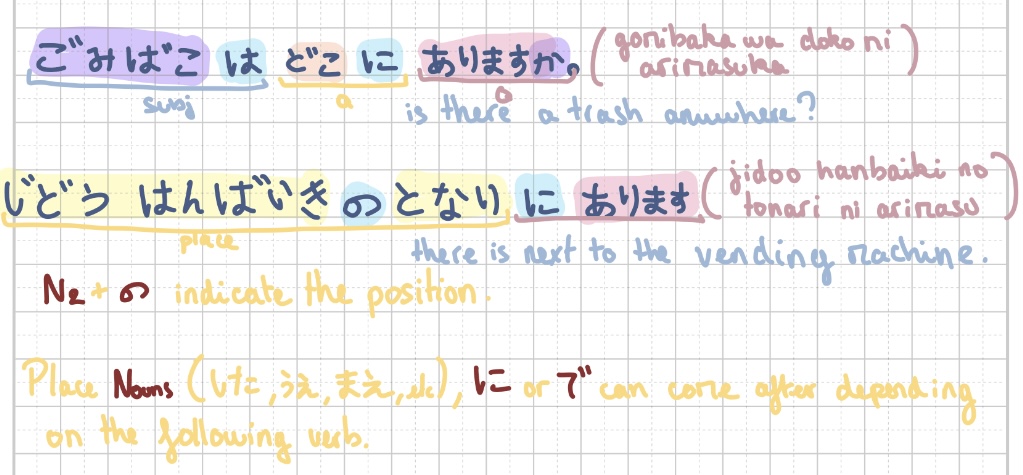 ごみばこ は どこ に ありますか。 (gomibako wa doko ni
arimasuka)
subj a
is there a trash anuwhere?
じどう はんばいき の となり に あります (jidoo hanbaiki no
tonari ni arimasu)
place
there is next to the vending machine.
N2 + の indicate the position.
Place Nouns (した, うえ, まえ, etc), に or で can come after depending
on the following verb.